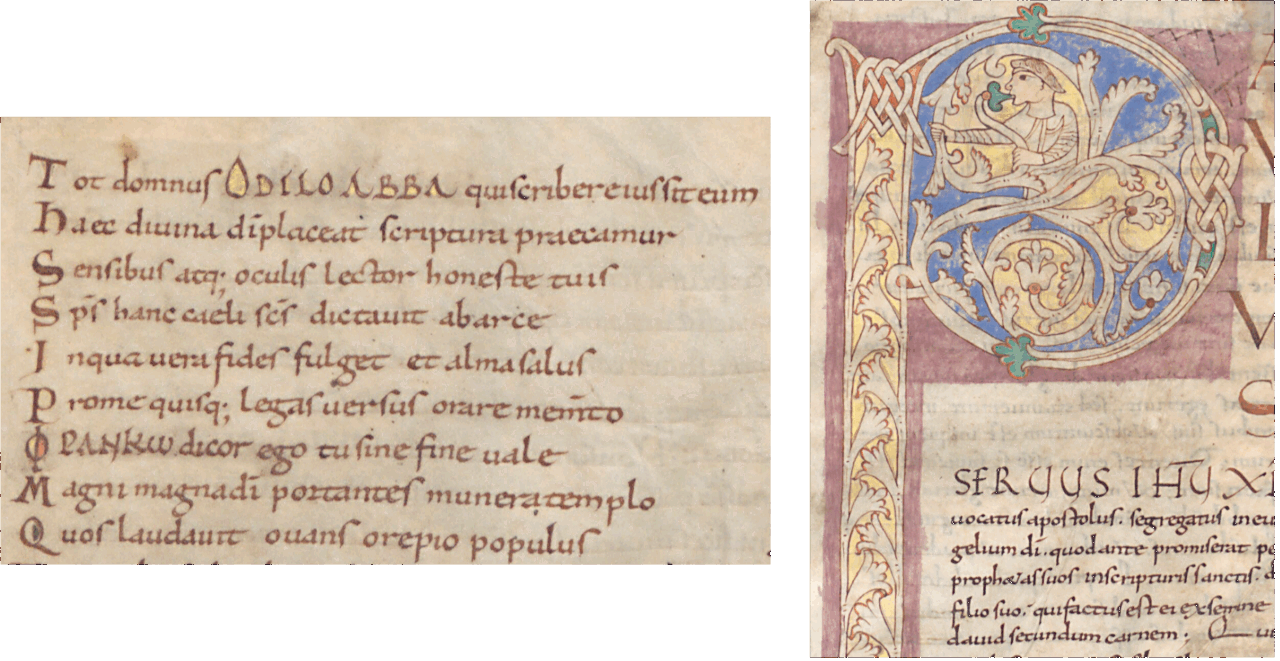 Tot domnus ODILO ABBA qui scribere iussit eum
Haec diuina dīplaceat scriptura praecamur
Sensibus atq; oculis lector honeste tuis
Sp̄s hanc caeli sc̄s dictauit ab arce
In qua uera fides fulget et alma salus
Prome quisq; legas uersus orare mem̄to
ΦΡΑΝΚω dicor ego tu sine fine uale
Magni magna dī portantes munera templo
Quos laudauit ouans ore pio populus
P
SERUUS IHU XPI
uocatus apostolus. segregatus in eu
gelium dī. quod ante promiserat pe
prophetas suos in scripturis sanctis. d
filio suo. qui factus est ei ex semine
dauid secundum carnem; Q